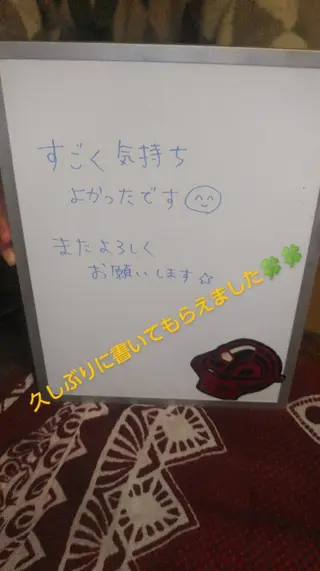 すごく気持ち
よかったです
またよろしく
お願いします☆
久しぶりに書いてもらえました🍀🍀